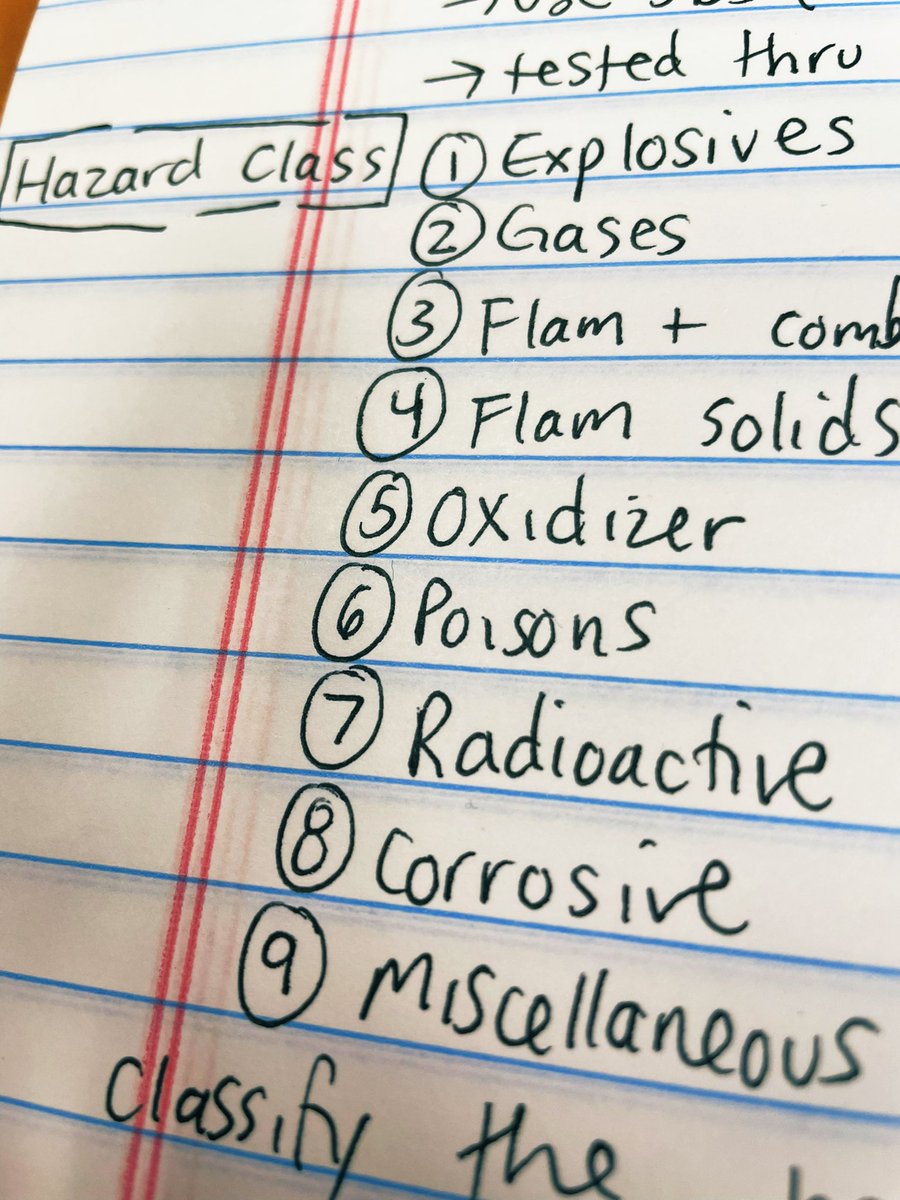 → tested thru
Hazard Class ① Explosives
② Gases
③ Flam + comb
④ Flam solids
⑤ Oxidizer
⑥ Poisons
⑦ Radioactive
⑧ Corrosive
⑨ Miscellaneous
Classify the